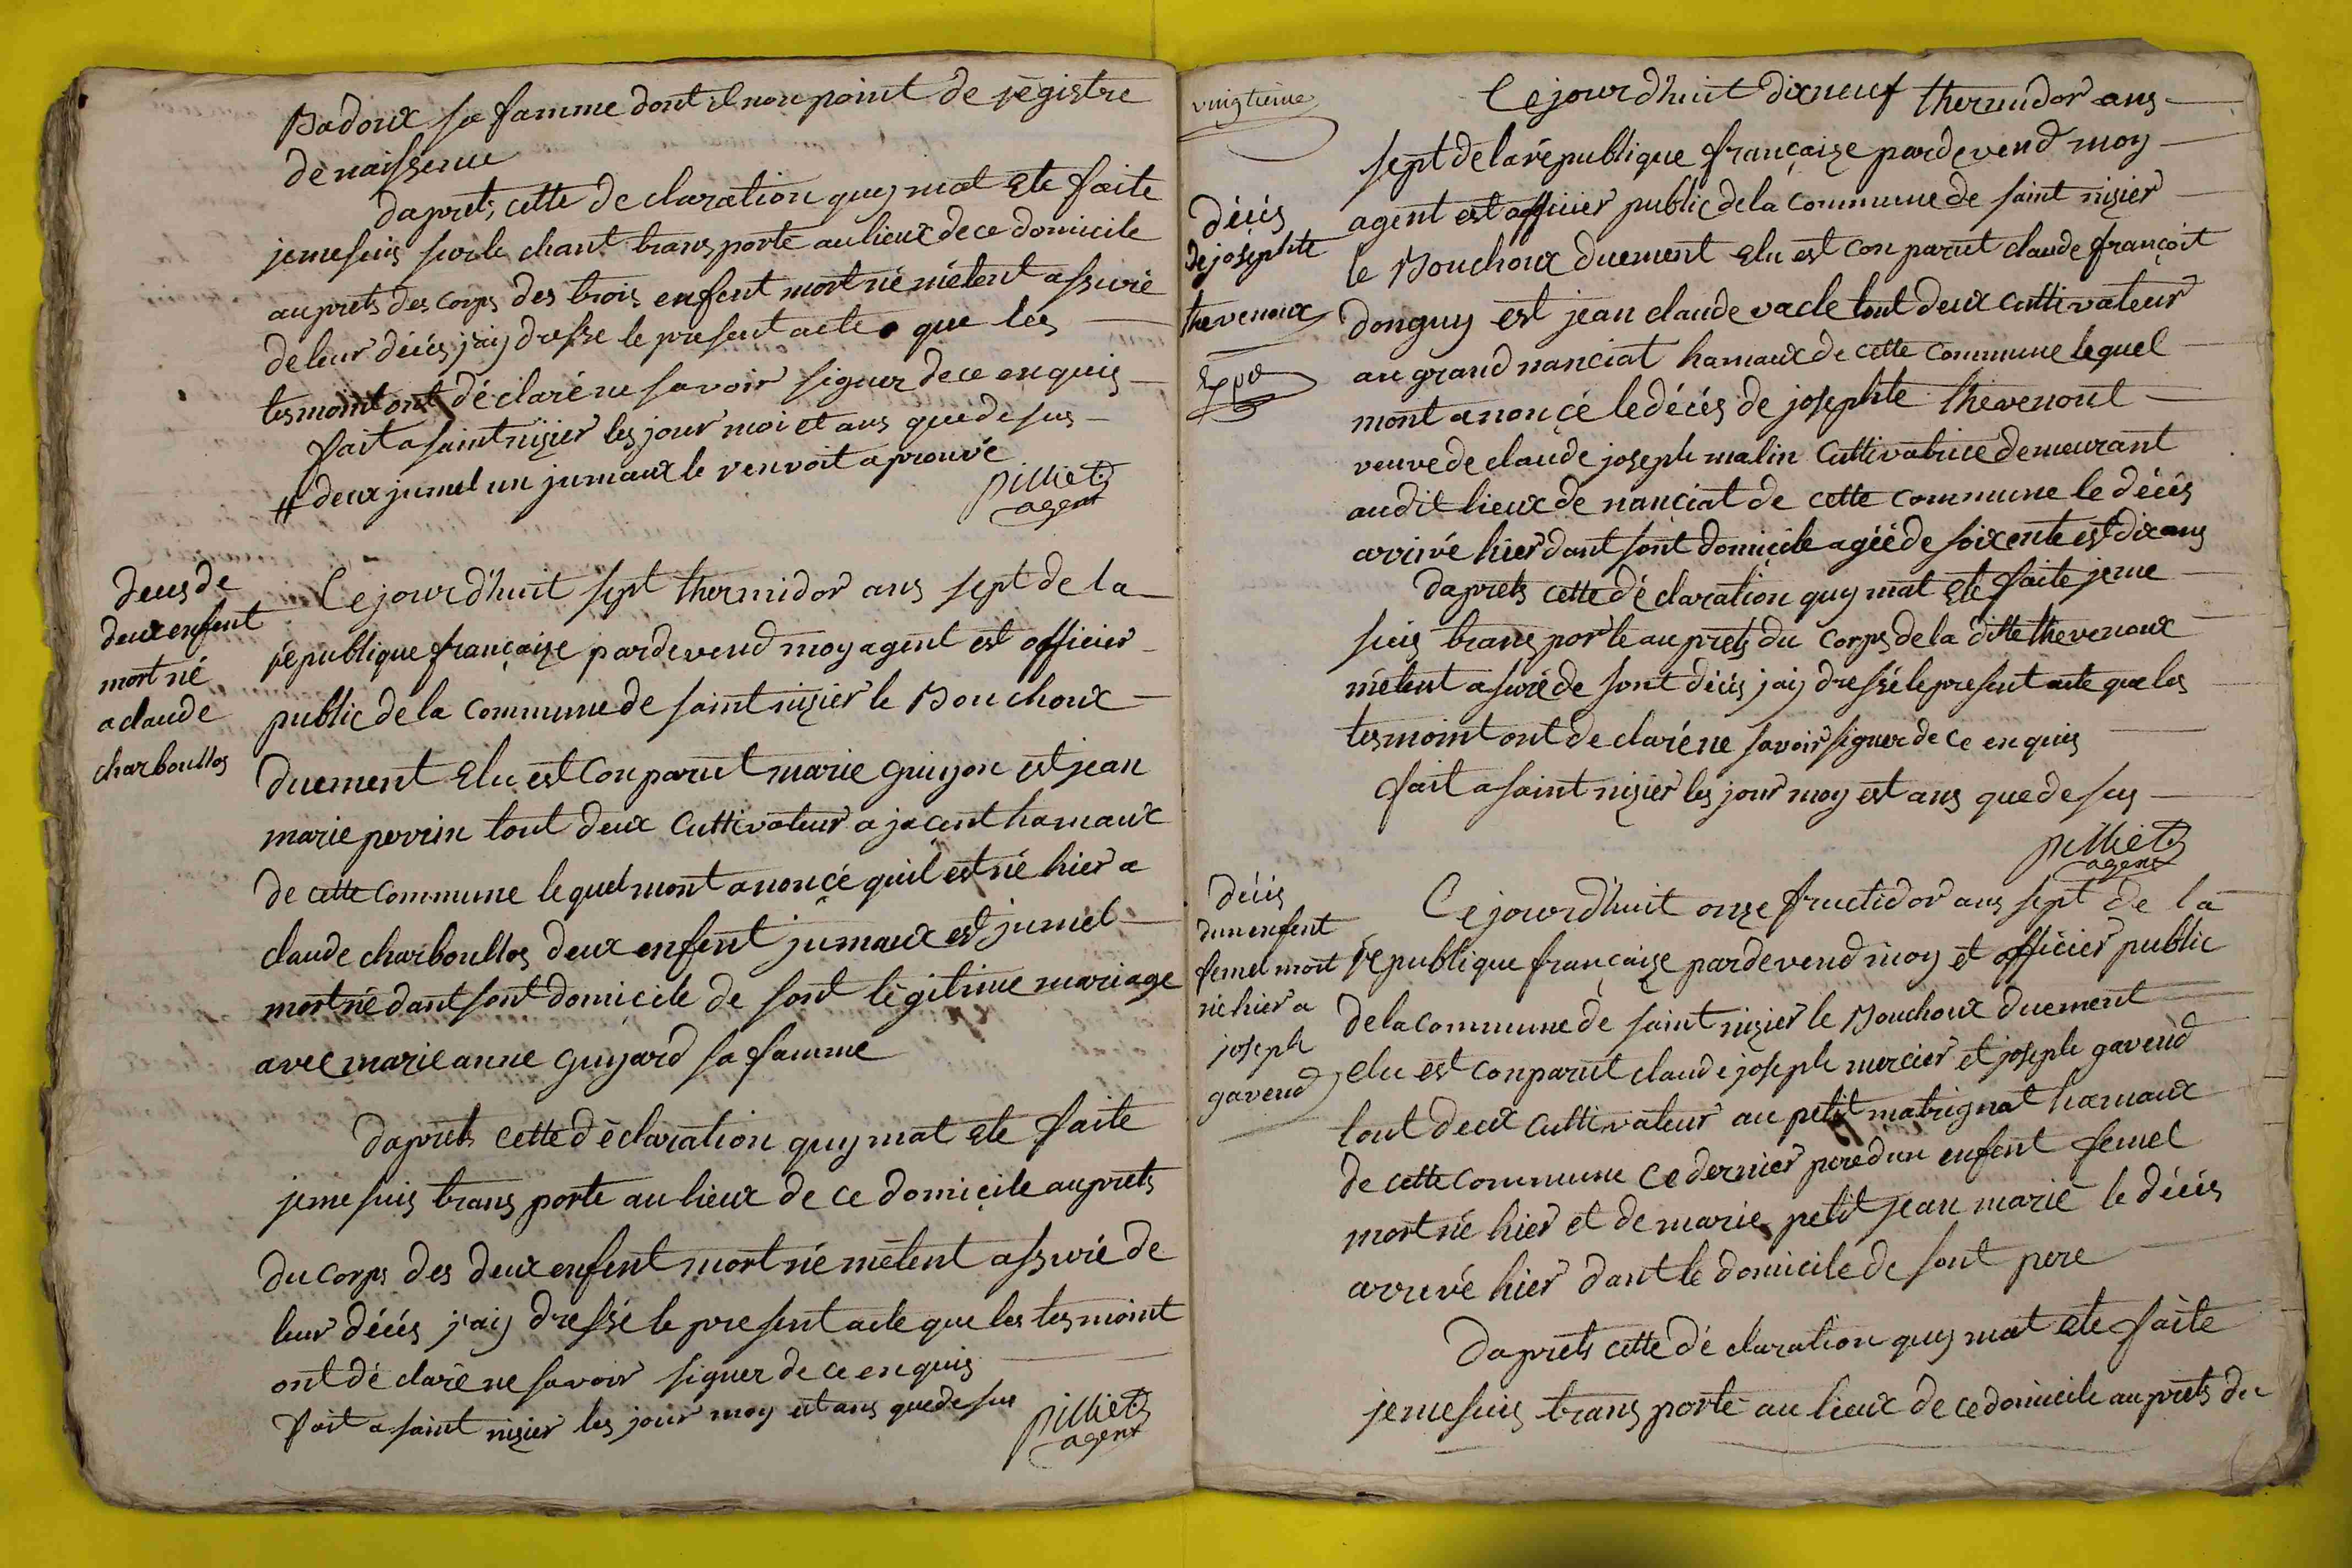 Badoux sa famme dont il non point de régistre
de naissence
daprets, cette de claration quy mat Ete faite
jeme suis sur le chant trans porté au lieux de ce domicile
auprets des corps des trois enfent mort né métent assuré
de leur décés j'aij dresse le present acte que les
tesmoint ont déclaré ne savoir signer de ce enquis
fait a saint nizier les jour moi et ans que de sus
# deux jumel un jumaux le renvoit aprouvé
pilliet
agent
deces de
deux enfent
mort né
a claude
charboullos
Ce jourd'huit sept thermidor ans sept de la
république françaize pardevend moy agent est officier
public de la commune de saint nizier le Bouchoux
duement Elu est conparut marie guyon est jean
marie perrin tout deux cuttivateur a jacent hamaux
de cette commune lequel mont anoncé quil est né hier a
claude charboullos deux enfent jumaux est jumel
mort né dant sont domicile de sont légitime mariage
avec marie anne guyard sa famme
daprets cette déclaration quy mat Ete faite
jeme suis trans porte au lieux de ce domicile auprets
du corps des deux enfent mort né mètent assuré de
leur décés j'aij dressé le present acte que les tesmoint
ont dé claré ne savoir signer de ce enquis
fait a saint nizier les jour moy et ans que de sus
pilliet
agent
vingtième
décés
de josephte
thevenoux
Ce jourd'huit dixneuf thermidor ans
sept de la république françaize pardevend moy
agent est officier public de la commune de saint nizier
le Bouchoux duement Elu est conparut claude françoit
donguy est jean claude vacle tout deux cuttivateur
au grand nanciat hamaux de cette commune lequel
mont anoncé le décés de josephte thevenout
veuve de claude joseph malin cuttivatrice demeurant
audit lieux de nanciat de cette commune le décés
arrivé hier dant sont domicile agéé de soixente est dix ans
daprets cette déclaration quy mat Ete faite jeme
suis trans porte auprets du corps de la ditte thevenoux
mètent asuré de sont décés j'aij dressé le present acte que les
tesmoint ont de claré ne savoir signer de ce enquis
fait a saint nizier les jour moy est ans que de sus
pilliet
agent
décés
dun enfent
femel mort
né hier a
joseph
gavend
Ce jourd'huit onze fructidor ans sept de la
république françaize pardevend moy et officier public
de la commune de saint nizier le Bouchoux duement
elu est conparut claude joseph mercier et joseph gavend
tout deux cuttivateur au petit matrignat hamaux
de cette commune ce dernier pere dun enfent femel
mort né hier et de marie petit jean marié le décés
arrivé hier dant le domicile de sont pere
daprets cette dé claration quy mat ete faite
jeme suis trans porté au lieux de ce domicile auprets du